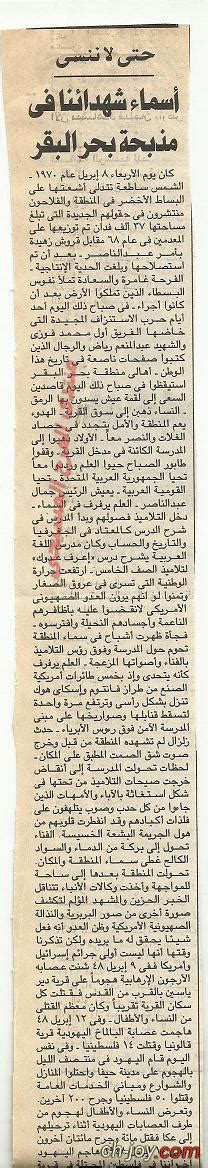 حتى لا ننسى
أسماء شهدائنا فى
مذبحة بحر البقر
كان يوم الأربعاء ٨ إبريل عام ١٩٧٠
الشمس ساطعة تتدلى أشعتها على
البساط الأخضر فى المنطقة والفلاحون
منتشرون فى حقولهم الجديدة التى تبلغ
مساحتها ٣٧ ألف فدان تم توزيعها على
المعدمين فى عام ٦٨ مقابل قروش زهيدة
بأمر عبدالناصر. بعد أن تم
استصلاحها وبلغت الحدية الإنتاجية.
الفرحة غامرة والسعادة تملأ نفوس
البسطاء الذين تملكوا الأرض بعد أن
كانوا أجراء. فى صباح ذلك اليوم أحد
أيام حرب الاستنزاف المجيدة التى
خاضها الفريق أول محمد فوزى
والشهيد عبدالمنعم رياض والرجال الذين
كتبوا صفحات ناصعة فى تاريخ هذا
الوطن. أهالى منطقة بحر البقر
استيقظوا فى صباح ذلك اليوم قاصدين
السعى إلى لقمة عيش يسدون بها الرمق
النساء ذهبن إلى سوق القرية الهدوء
يعم المنطقة والأمل يتجدد فى حصاد
الغلات والنصر معاً. الأولاد ذهبوا إلى
المدرسة الكائنة فى مدخل القرية. وقفوا
طابور الصباح حيوا العلم ورددوا معاً
تحيا الجمهورية العربية المتحدة. تحيا
القومية العربية. يعيش الرئيس جمال
عبدالناصر. العلم يرفرف فى السماء.
دخل التلاميذ فصولهم وبدأ المدرسون
شرح الدرس كالمعتاد فى الجغرافيا
والتاريخ والحساب وكان مدرس اللغة
العربية يشرح درس «إعرف عدوك»
لتلاميذ الصف الخامس. ارتفعت حرارة
الوطنية التى تسرى فى عروق الصغار
وتمنوا لو أنهم يرون العدو الصهيونى
الأمريكى لانقضوا عليه بأظافرهم
الناعمة وأجسادهم النحيلة وافترسوه.
فجأة ظهرت أشباح فى سماء المنطقة
تحوم حول المدرسة وفوق رؤس التلاميذ
بالفناء وأصواتها المزعجة. العلم يرفرف
كأنه يتحدى وإذ بخمس طائرات أمريكية
الصنع من طراز فانتوم وإسكاى هوك
تنزل بشكل رأسى وترتفع مرة واحدة
لتسقط قنابلها وصواريخها على مبنى
المدرسة الآمن فوق رءوس الأبرياء. حدث
زلزال لم تشهده المنطقة من قبل وخرج
صوت شق الصمت المطبق على المكان.
لحظات تحولت المدرسة إلى أنقاض
خرجت صيحات التلاميذ من تحتها فى
شكل استغاثة بالآباء والأمهات الذين
جاءوا من كل حدب وصوب يتلهفون على
فلذات أكبادهم وقد انفطرت قلوبهم من
هول الجريمة البشعة الخسيسة. الفناء
تحول إلى بركة من الدماء والسواد
الكالح غطى سماء المنطقة والمكان.
تحولت المنطقة بعدها إلى ساحة
للمواجهة وأخذت وكالات الأنباء تتناقل
الخبر الحزين والمشهد المؤلم لتكشف
صورة أخرى من صور البربرية والنذالة
الصهيونية الأمريكية وظن العدو أنه فعل
شيئا يحقق له ما يريده ولكن تذكرنا
وقتها أنها ليست أولى جرائم إسرائيل
وأمريكا ففى ٩ إبريل ٤٨ شنت عصابة
الأرجون الإرهابية هجوماً على قرية دير
ياسين بالقرب من القدس فقتلت كل
سكان القرية تقريباً وكان معظم القتلى
من النساء والأطفال. وفى ١٢ إبريل ٤٨
هاجمت عصابة البالماخ اليهودية قرية
قالونيا وقتلت ١٤ فلسطينيا. وفى نفس
اليوم قام اليهود فى منتصف الليل
بالهجوم على مدينة حيفا واحتلوا المنازل
والشوارع ومبانى الخدمات العامة
وقتلوا ٥٠ فلسطينياً وجرح ٢٠٠ آخرين.
وتعرض النساء والأطفال لهجوم من
طرف العصابات اليهودية أثناء ترحيلهم
إلى عكا فقتل مائة وجرح مائتان آخرون
ch-joy.com